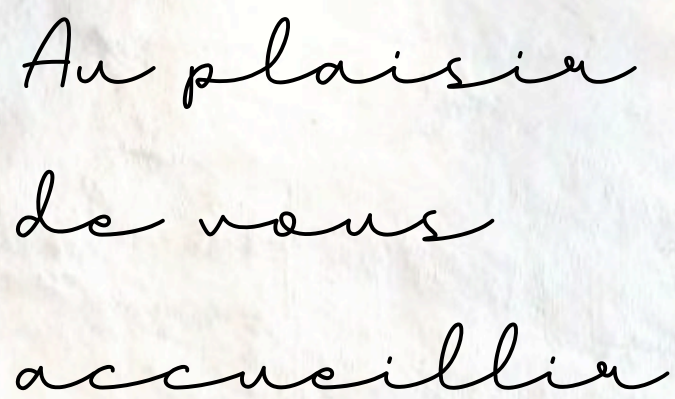 Au plaisir
de vous
accueillir